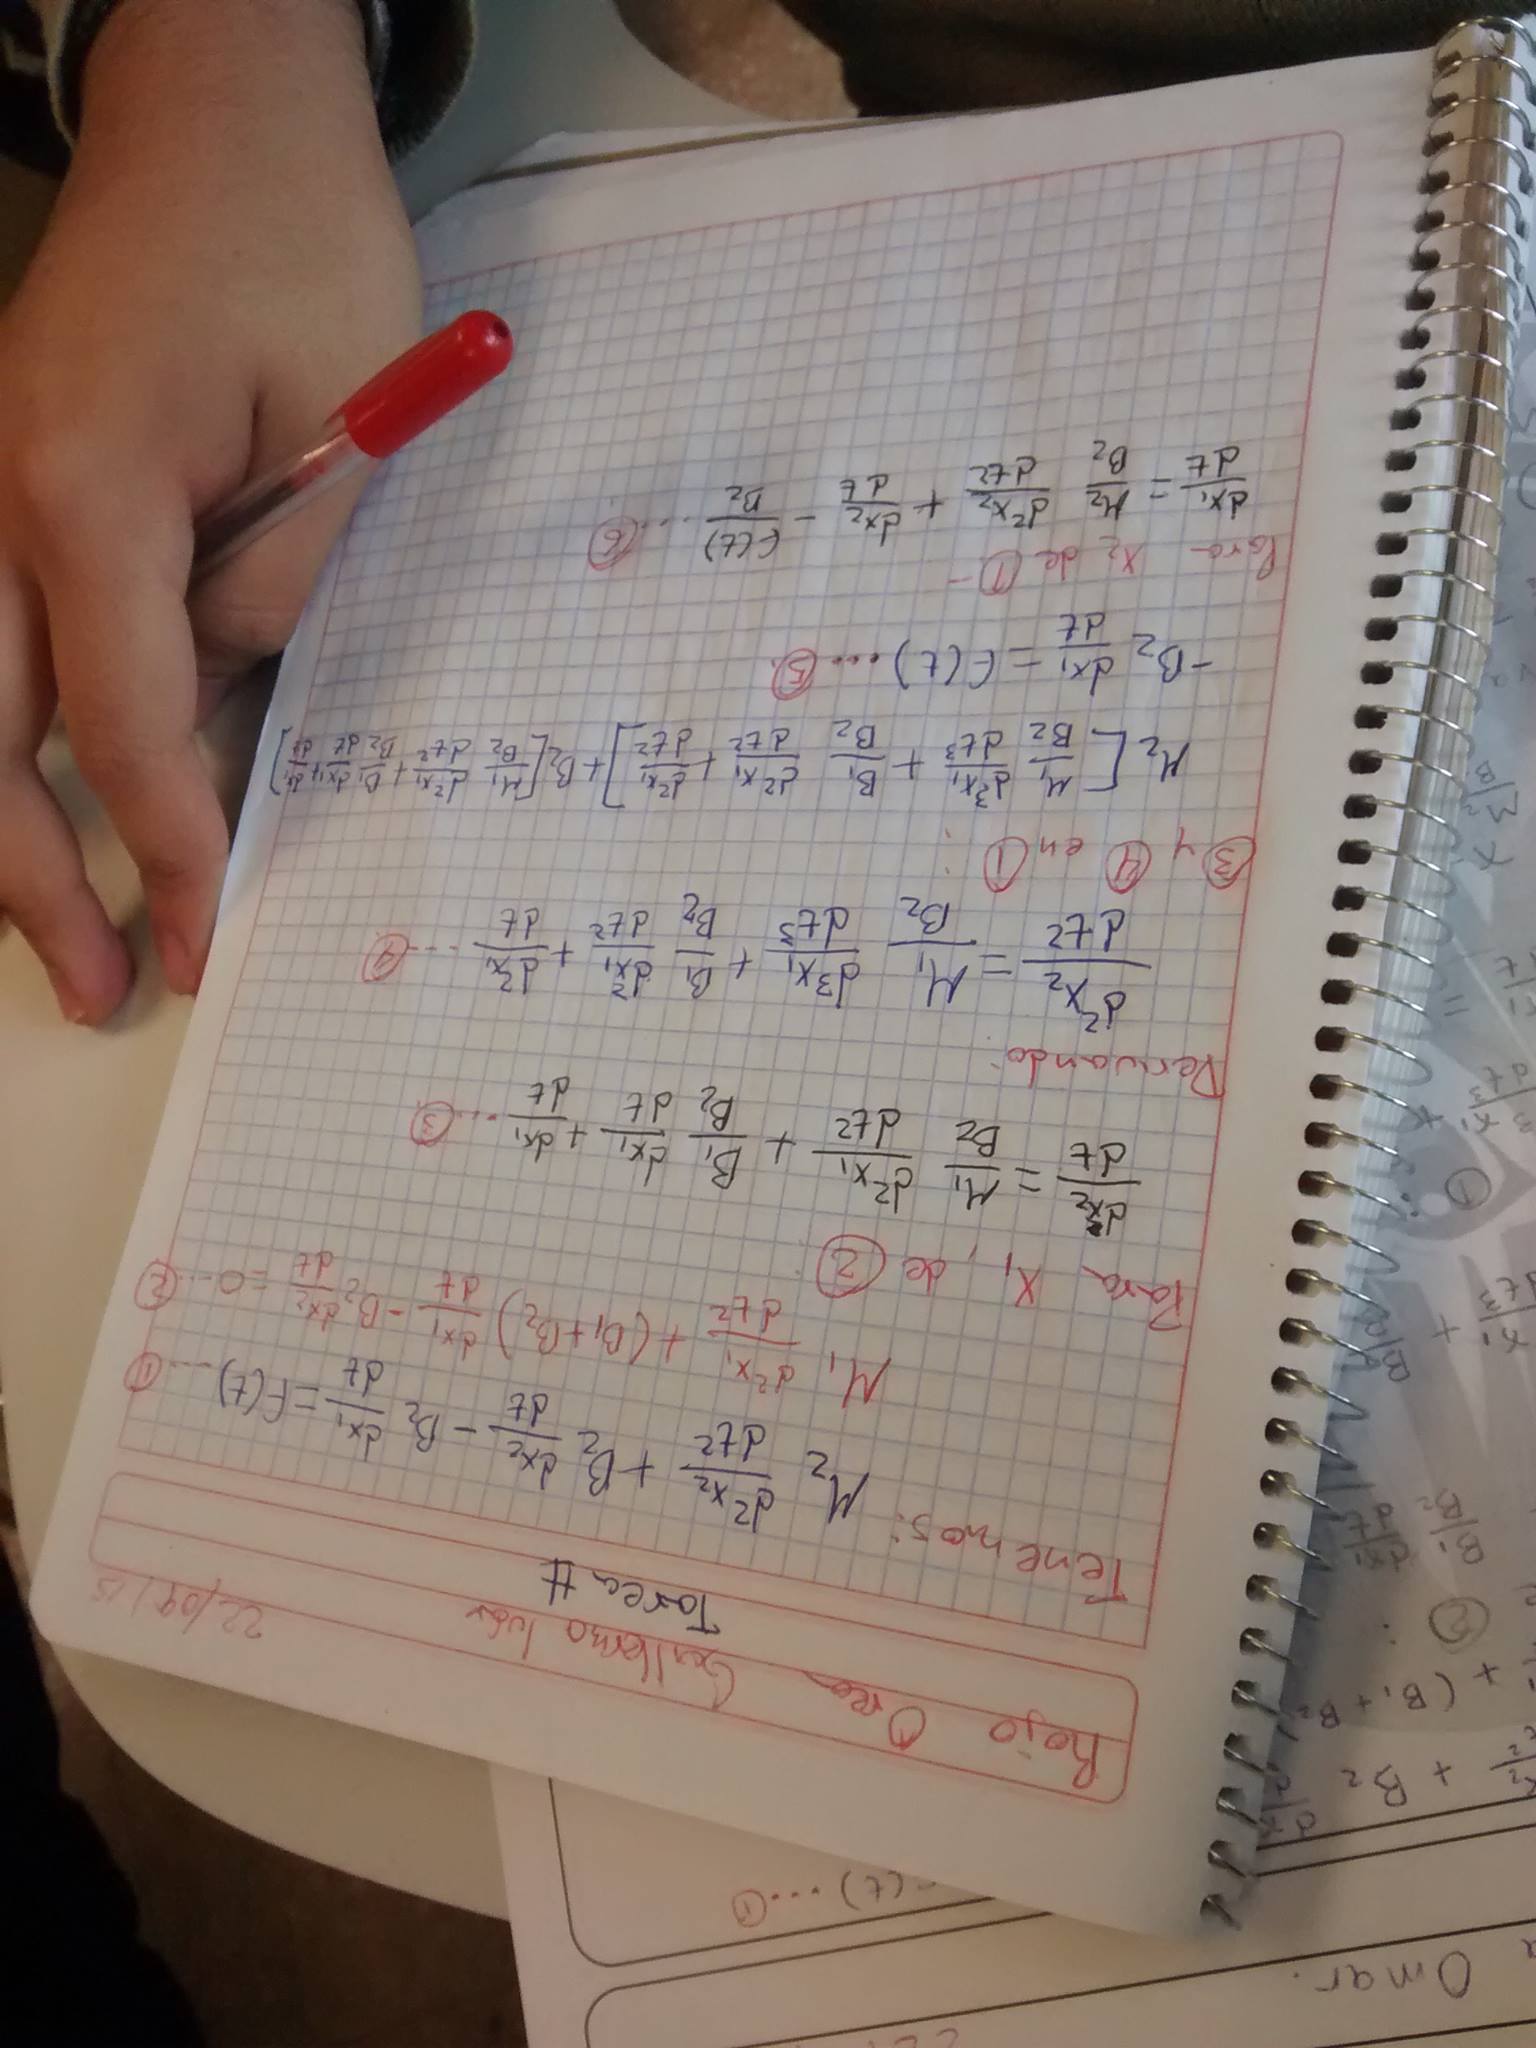 Omar.
f(t) ...①
+ B₂
+ (B₁ + B₂
② :
B₁/B₂ dx₁/dt
① :
Rojo Orea Guillermo
22/09/15
Tarea #
Tenemos:
M₂ d²x₂/dt² + B₂ dx₂/dt - B₂ dx₁/dt = f(t) ... ①
M₁ d²x₁/dt² + (B₁+B₂) dx₁/dt - B₂ dx₂/dt = 0 ... ②
Para X₁, de ② :
dx₂/dt = M₁/B₂ d²x₁/dt² + B₁/B₂ dx₁/dt + dx₁/dt ... ③
Derivando:
d²x₂/dt² = M₁/B₂ d³x₁/dt³ + B₁/B₂ d²x₁/dt² + d²x₁/dt ... ④
③ y ④ en ① :
M₂ [ M₁/B₂ d³x₁/dt³ + B₁/B₂ d²x₁/dt² + d²x₁/dt² ] + B₂ [ M₁/B₂ d²x₁/dt² + B₁/B₂ dx₁/dt + dx₁/dt ]
- B₂ dx₁/dt = f(t) ... ⑤
Para x₂ de ①
dx₁/dt = M₂/B₂ d²x₂/dt² + dx₂/dt - f(t)/B₂ ... ⑥